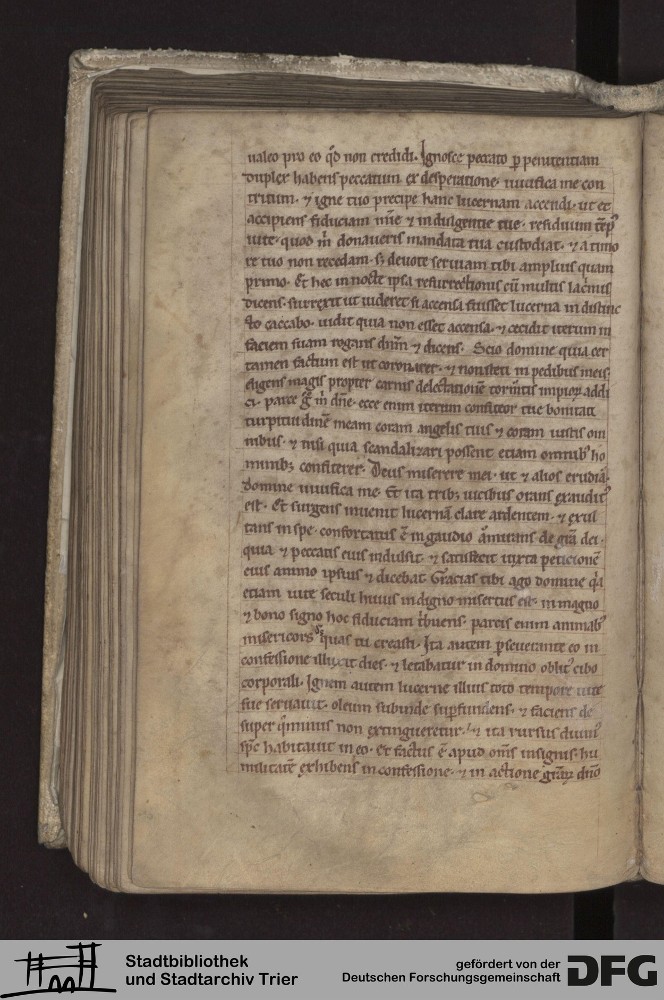 ualeo pro eo qđ non credidi. Ignosce peccato ꝑ penitentiam
duplex habens peccatum ex desperatione. uiuifica me con
tritum. ⁊ igne tuo precipe hanc lucernam accendi. ut et
accipiens fiduciam mīe ⁊ indulgentie tue. residuum
uite. quod m̄ donaueris mandata tua custodiat. ⁊ a timo
re tuo non recedam. sꝫ deuote seruiam tibi amplius quam
primo. Et hec in nocte ipsa resurrectionis cū multis lac̄mis
dicens. surrexit ut uideret si accensa fuisset lucerna in distinc
to caccabo. uidit quia non esset accensa. ⁊ cecidit iterum in
faciem suam rogans dn̄m ⁊ dicens. Scio domine quia cer
tamen factum est ut coronarer. ⁊ non steti in pedibus meis.
eligens magis propter carnis delectationē tormtis impioꝝ addi
ci. parce m̄ dn̄e. ecce enim iterum confiteor tue bonitati
turpitudinē meam coram angelis tuis ⁊ coram iustis om
nibus. ⁊ nisi quia scandalizari possent etiam omnibꝰ ho
minibꝫ confiterer. Deus miserere mei. ut ⁊ alios erudiā.
domine uiuifica me. Et ita tribꝫ uicibus orans exauditꝰ
est. Et surgens inuenit lucernā clare ardentem. ⁊ exul
tans in spe. confortatus ē in gaudio de gr̄a dei.
quia ⁊ peccatis eius indulsit. ⁊ satisfecit iuxta peticionē
eius animo ipsius ⁊ dicebat Gr̄acias tibi ago domine
etiam uite seculi huius indigno misertus es. in magno
⁊ bono signo hoc fiduciam tribuens. parcis enim animabꝰ
misericors quas tu creasti. Ita autem ꝑseuerante eo in
confessione illuxit dies. ⁊ letabatur in domino oblitꝰ cibo
corporali. Ignem autem lucerne illius toto tempore uite
sue seruauit. oleum subinde suꝑfundens. ⁊ faciens de
super non extingueretur. ⁊ ita rursus diuinꝰ
sp̄c habitauit in eo. et factus ē apud om̄s insignis. hu
militatē exhibens in confessione. ⁊ in actione gr̄aꝝ dn̄o
Stadtbibliothek
und Stadtarchiv Trier
gefördert von der
Deutschen Forschungsgemeinschaft
DFG